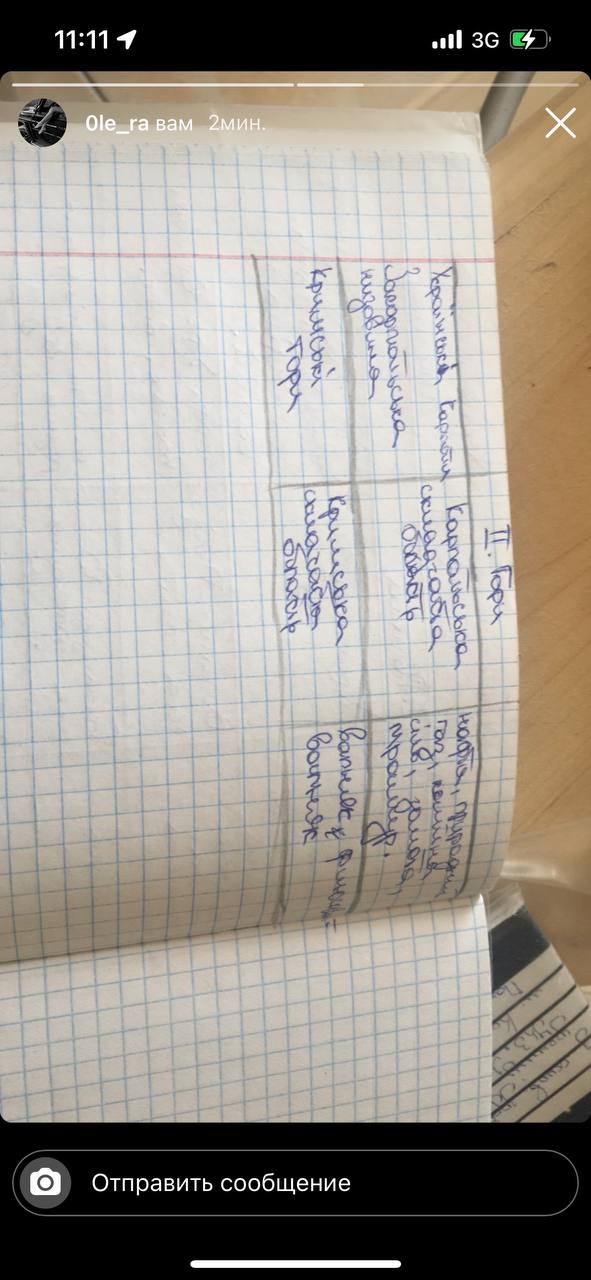 11:11
3G
0le_ra вам 2мин.
II. Гори
Українські Карпати
Закарпатська
низовина
Карпатська
складчаста
область
нафта, природній
газ, кам'яна
сіль, золото,
мрамор.
Кримські
Гори
Кримська
складчаста
область
вапняк
Отправить сообщение